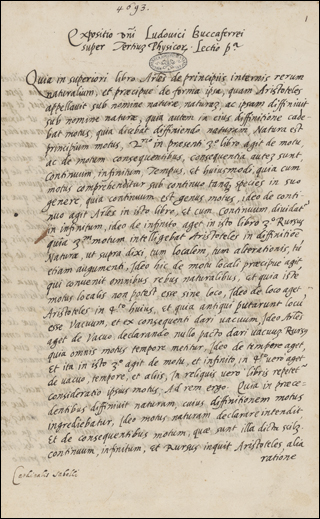 4093.
1
Expositio Dñi Ludovici Buccaferrei
super Tertiũ Physicor. Lectio pª
Quia in superiori libro Arles de principiis internis rerum
naturalium, et præcipue de forma ipsa, quam Aristoteles
appellavit sub nomine naturæ, ac ipsam diffinivit
sub nomine naturæ, quia autem in eius diffinitione cade-
bat motus, quia dicebat diffiniendo naturam, Natura est
principium motus, in present 3º libro agit de motu,
ac de motum consequentibus, consequentia autez sunt,
continuum, infinitum, Tempus, et huiusmodi, quia cum
motus comprehenditur sub continuo tanq species in suo
genere, quia continuum est genus motus, ideo de conti-
nuo agit Arles in isto libro, et cum continuum dividatᵉ
in infinitum, ideo de infinito aget in isto libro 3º Rursus
quia motum intellegebat Aristoteles in diffinitione
Naturæ, ut supra dixi cum localem, tum alterationis, tũ
etiam augumenti, Ideo hic de motu locali præcipue agit,
qui convenit omnibus rebus naturalibus, et quia iste
motus localis non potest esse sine loco, Ideo de loco aget
Aristoteles in huius, et quia antiqui putarunt locũ
esse Vacuum, et ex consequenti dari vacuum, Ideo Arles
aget de Vacuo, declarando nullo pacto dari vacuũ, Rursus
quia omnis motus tempore metitur, Ideo de tempore aget,
Et ita in isto 3º agit de motu, et infinito, in 4º vero aget
de vacuo, tempore, et aliis, In reliquis vero libris repetetᵉ
consideratio ipsius motus, Ad rem ergo. Quia in præce-
dentibus diffinivit naturam, cuius diffinitionem motus
ingrediebatur, Ideo motus naturam declarare intendit
et de consequentibus motum, quæ sunt illa dicta scilz
continuum, infinitum, et Rursus inquit Aristoteles, alia
ratione
Cardinalis Sabelli